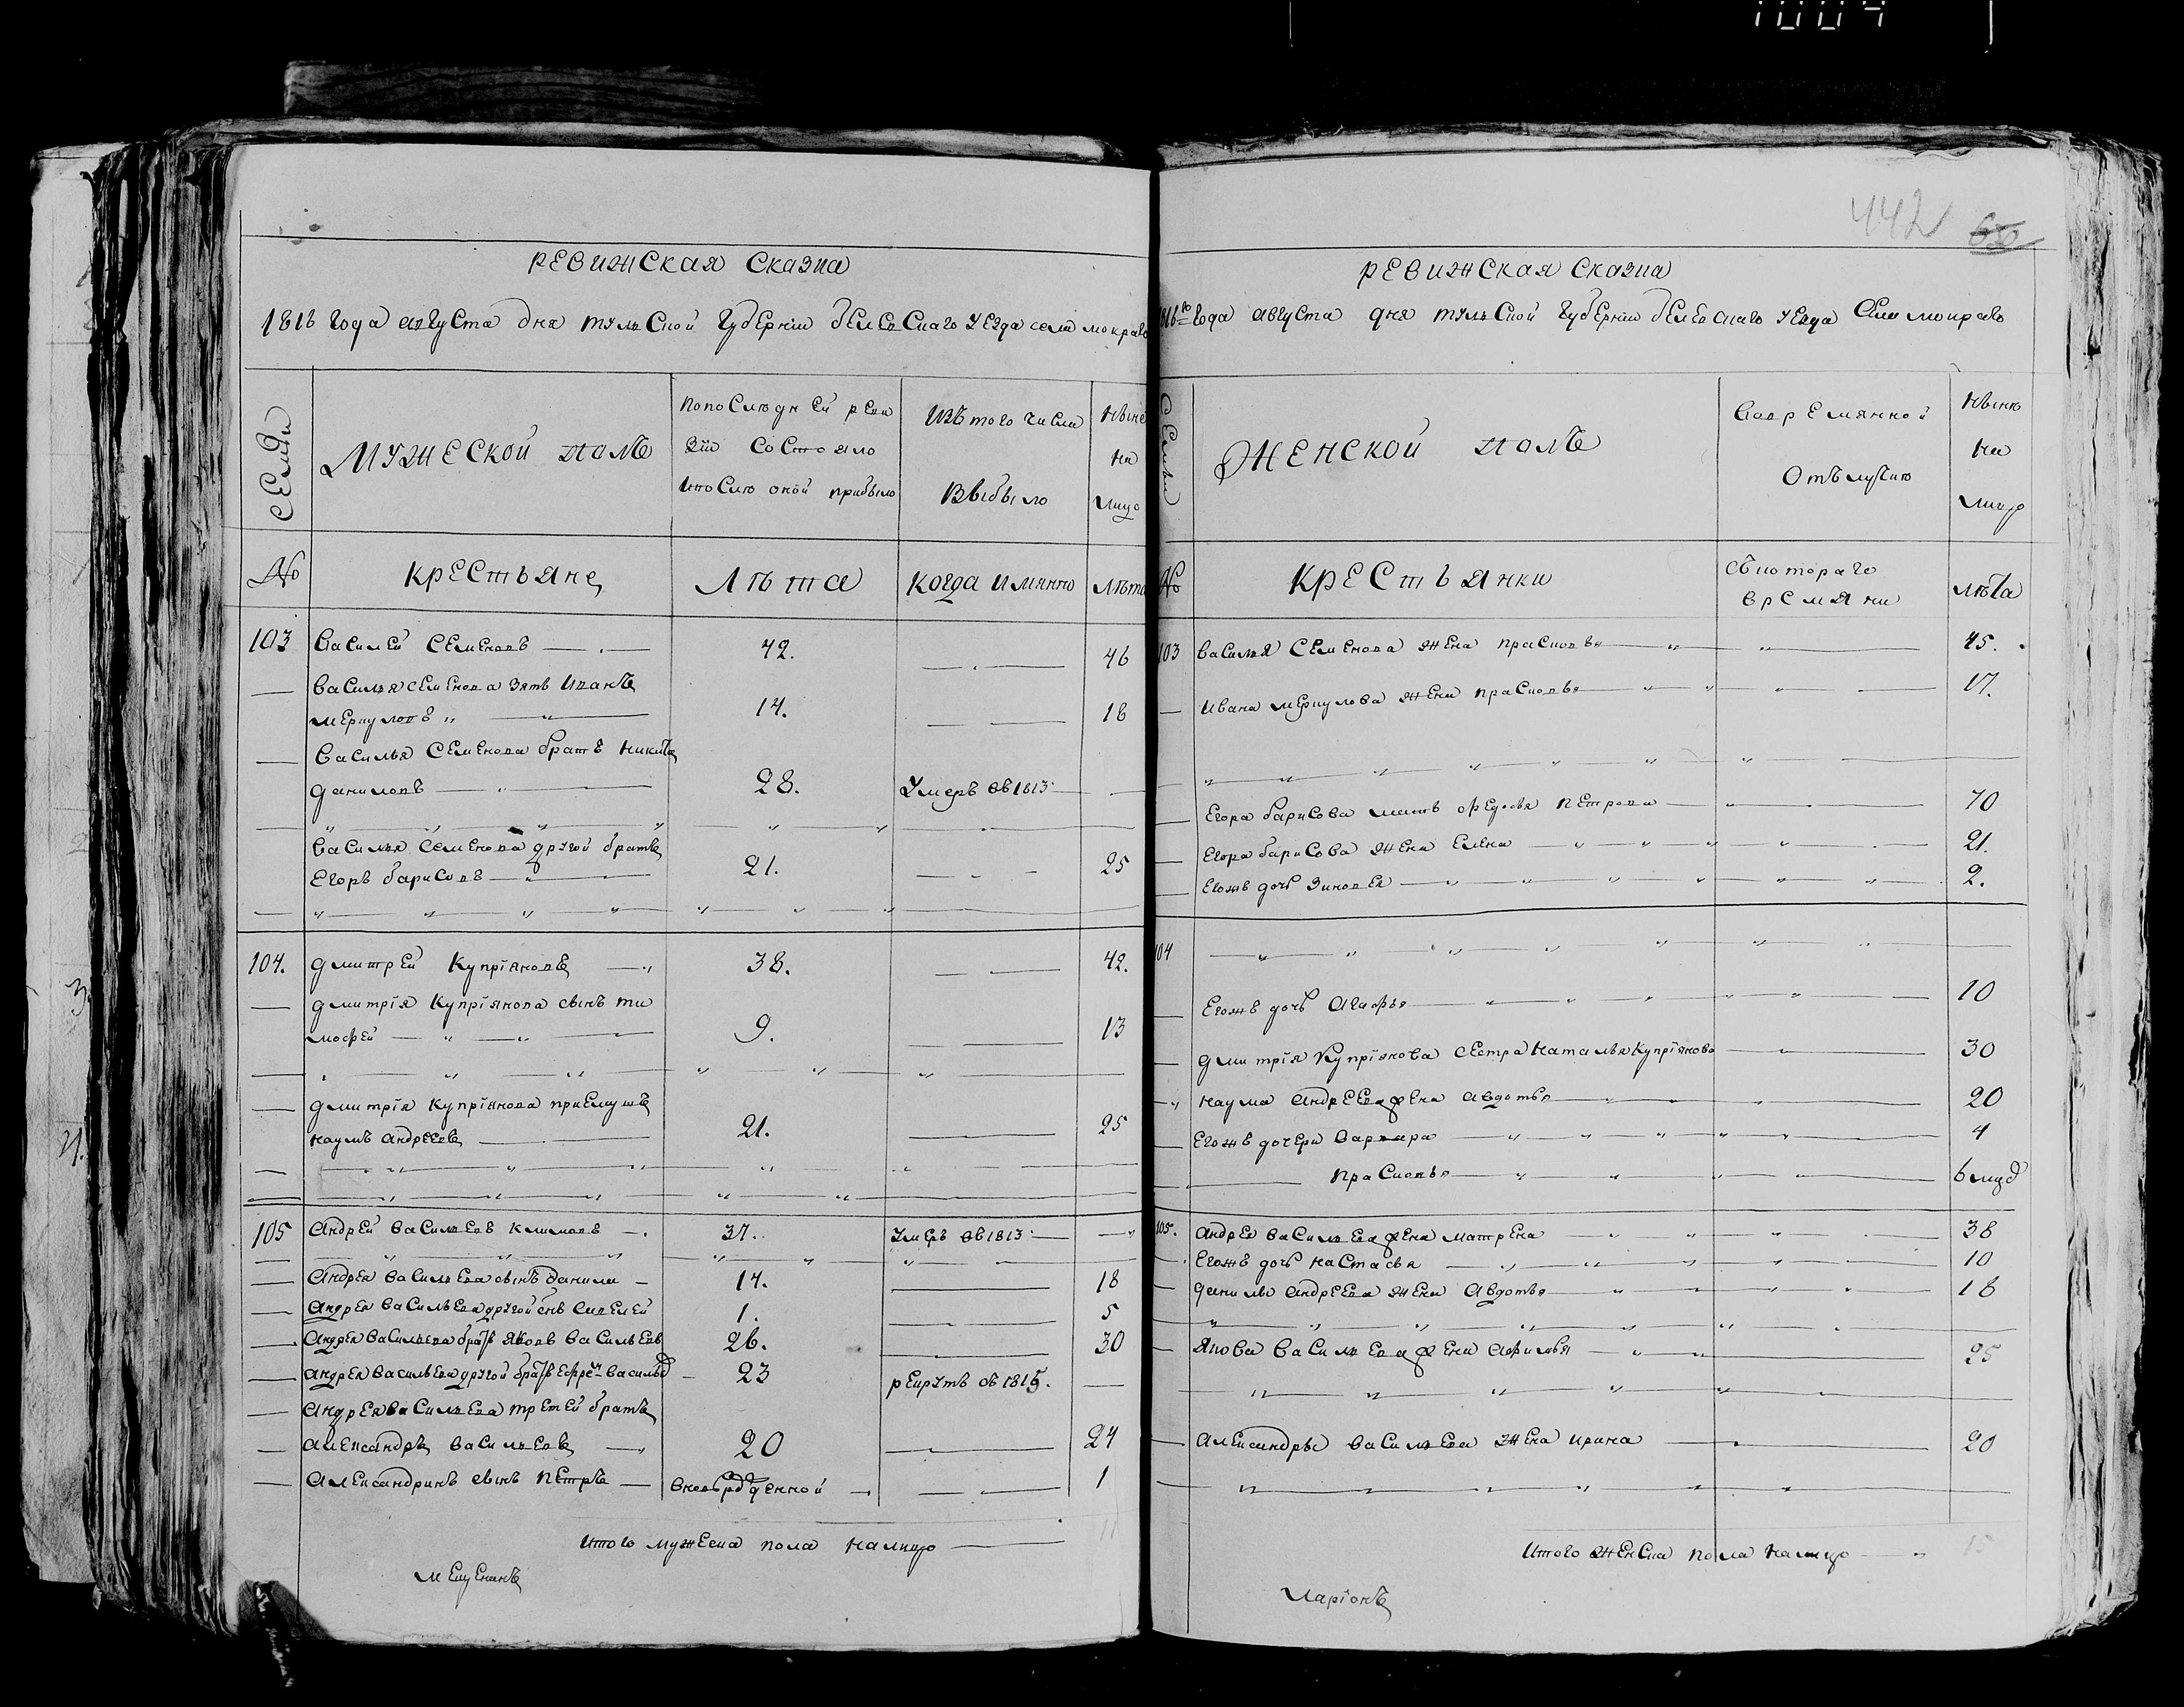 1004
442 650
РЕВИЖСКАЯ СКАЗКА
1816 года августа дня тульской губернии белевскаго уезда села мокраго
СЕМЬИ
МУЖЕСКОЙ ПОЛЪ
попоследней реви
зіи состояло
ипосле оной прибыло
изъ того числа
выбыло
Ныне
на
лицо
№
крестьяне
лѣта
когда имянно
лѣта
103 василей семеновъ 42. 46
василья семенова зять иванъ
меркуловъ 14. 18
василья семенова братъ никита
даниловъ 28. умеръ въ 1813
василья семенова другой братъ
егоръ барисовъ 21. 25
104. дмитрей купріяновъ 38. 42.
дмитрія купріянова сынъ ти
мофей 9. 13
дмитрія купріянова приемушъ
наумъ андреевъ 21. 25
105 андрей васильевъ климовъ 37. умеръ въ 1813
андрея васильева сынъ данила 14. 18
андрея васильева другой снъ савелей 1. 5
андрея васильева братъ яковъ васильевъ 26. 30
андрея васильева другой братъ ефремъ васильевъ 23 рекрутъ въ 1815.
андрея васильева третей братъ
александръ васильевъ 20 24
александринъ сынъ петръ вновьрожденной 1
итого мужеска пола налицо 11
мещенинъ
РЕВИЖСКАЯ СКАЗКА
1816го года августа дня тульской губернии белевскаго уезда села мокраго
Семьи
ЖЕНСКОЙ ПОЛЪ
вовремянной
отълучке
Нынѣ
на
лицо
№
крестьянки
съкотораго
времяни
лѣта
103 василья семенова жена прасковья 45.
ивана меркулова жена прасковья 17.
егора барисова мать федосья петрова 70
егора барисова жена елена 21.
егожъ дочь зиновея 2.
104
егожъ дочь агафья 10
дмитрія купріянова сестра наталья купріянова 30
наума андреева жена авдотья 20
егожъ дочери варвара 4
прасковья 6 мцд
105. андрея васильева жена матрена 38
егожъ дочь настасья 10
данилы андреева жена авдотья 18
якова васильева жена афимья 25
александры васильева жена ирина 20
итого женска пола налицо 13
ларіонъ